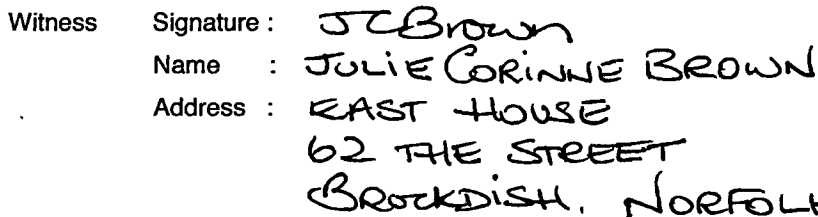 Witness Signature : JCBrown
Name : JULIE CORINNE BROWN
Address : EAST HOUSE
62 THE STREET
BROCKDISH, NORFOLK